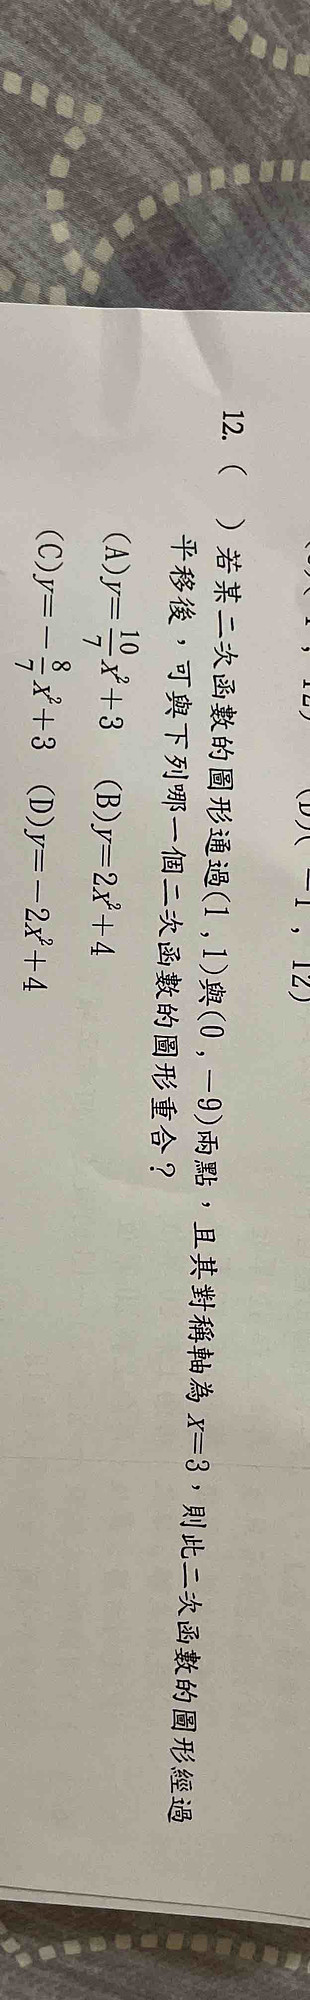 (D)(－1，12)
12.（　）若某二次函數的圖形通過(1，1)與(0，－9)兩點，且其對稱軸為 x=3，則此二次函數的圖形經過
平移後，可與下列哪一個二次函數的圖形重合？
(A)y=\frac{10}{7}x²+3　(B)y=2x²+4
(C)y=-\frac{8}{7}x²+3　(D)y=-2x²+4